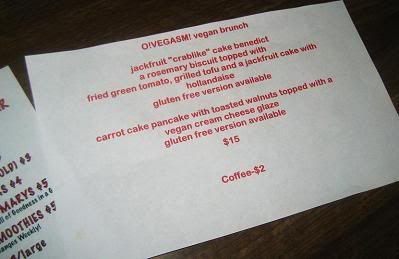 O!VEGASM! vegan brunch
jackfruit "crablike" cake benedict
a rosemary biscuit topped with
fried green tomato, grilled tofu and a jackfruit cake with
hollandaise
gluten free version available
carrot cake pancake with toasted walnuts topped with a
vegan cream cheese glaze
gluten free version available
$15
Coffee-$2
$3
$4
MARYS $5
of Goodness in a
MOOTHIES $5
Weekly!
/large